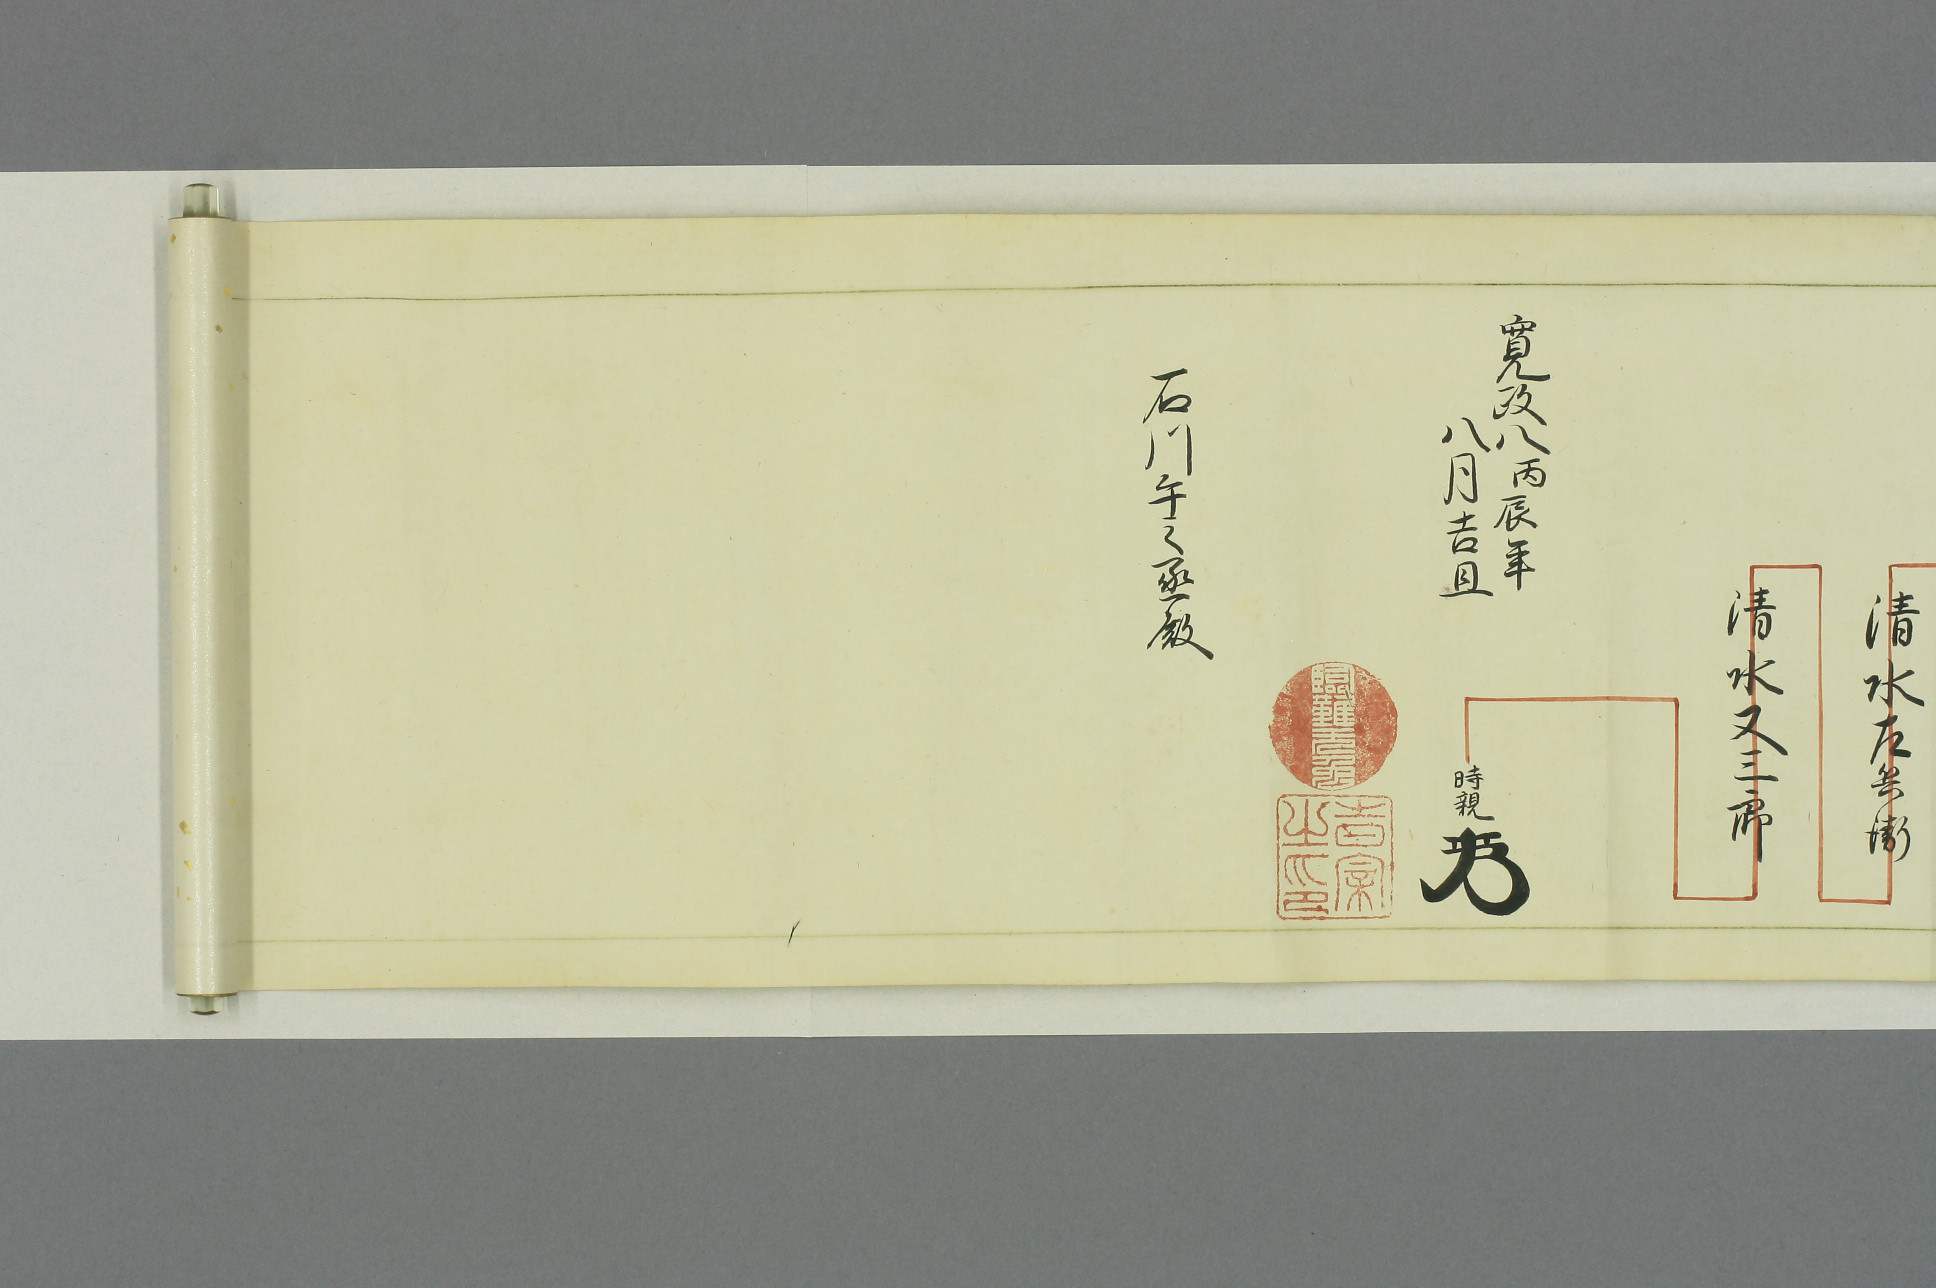 清水左兵衛
清水又三郎
時親
寛政八丙辰年
八月吉旦
吉宗之印
石川午之丞殿